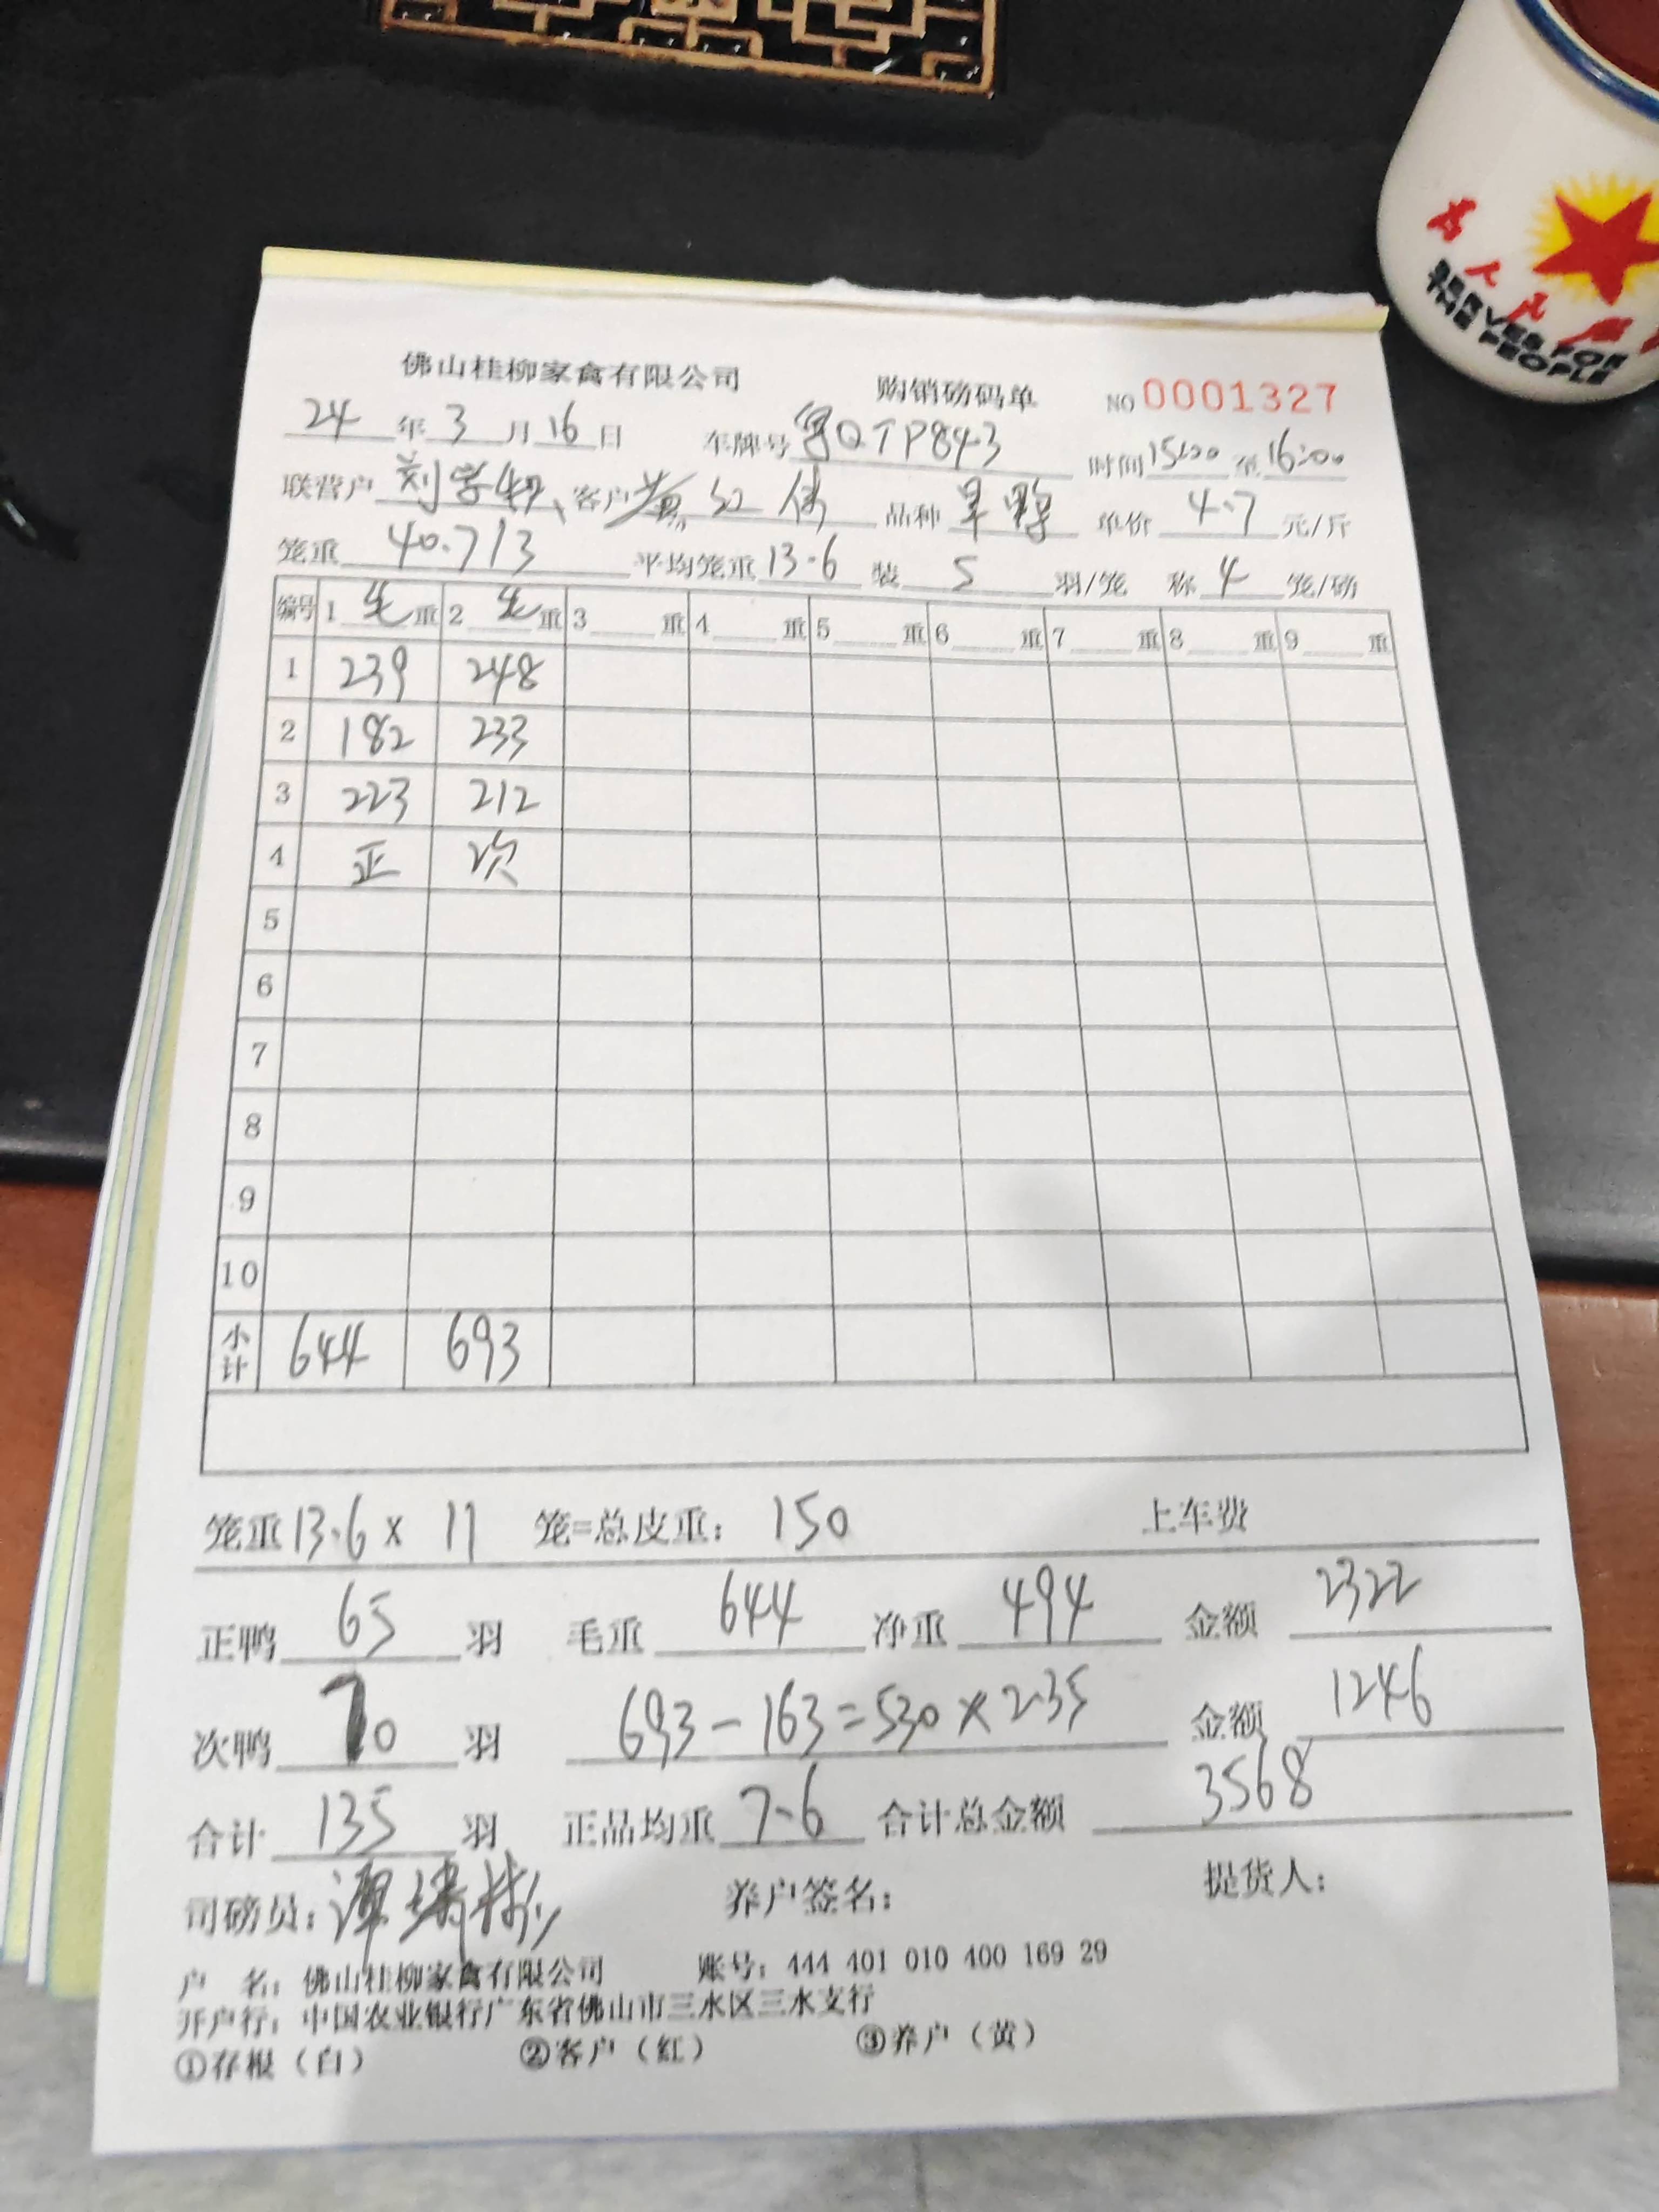 佛山桂柳家禽有限公司 购销磅码单 NO 0001327
24 年 3 月 16 日 车牌号 粤QTP843 时间 15:00 至 16:00
联营户 刘学 客户 黄红伟 品种 旱鸭 单价 4.7 元/斤
笼重 40.7/3 平均笼重 13.6 装 5 羽/笼 称 4 笼/磅
编号 1 毛 重 2 毛 重 3 重 4 重 5 重 6 重 7 重 8 重 9 重
1 239 248
2 182 233
3 223 212
4 正 次
5
6
7
8
9
10
小计 644 693
笼重 13.6 x 11 笼=总皮重: 150 上车费
正鸭 65 羽 毛重 644 净重 494 金额 2322
次鸭 70 羽 693-163=530×2.35 金额 1246
合计 135 羽 正品均重 7.6 合计总金额 3568
司磅员: 谭 养户签名: 提货人:
户 名: 佛山桂柳家禽有限公司 账号: 444 401 010 400 169 29
开户行: 中国农业银行广东省佛山市三水区三水支行
①存根(白) ②客户(红) ③养户(黄)
为人民
SERVES FOR
THE PEOPLE